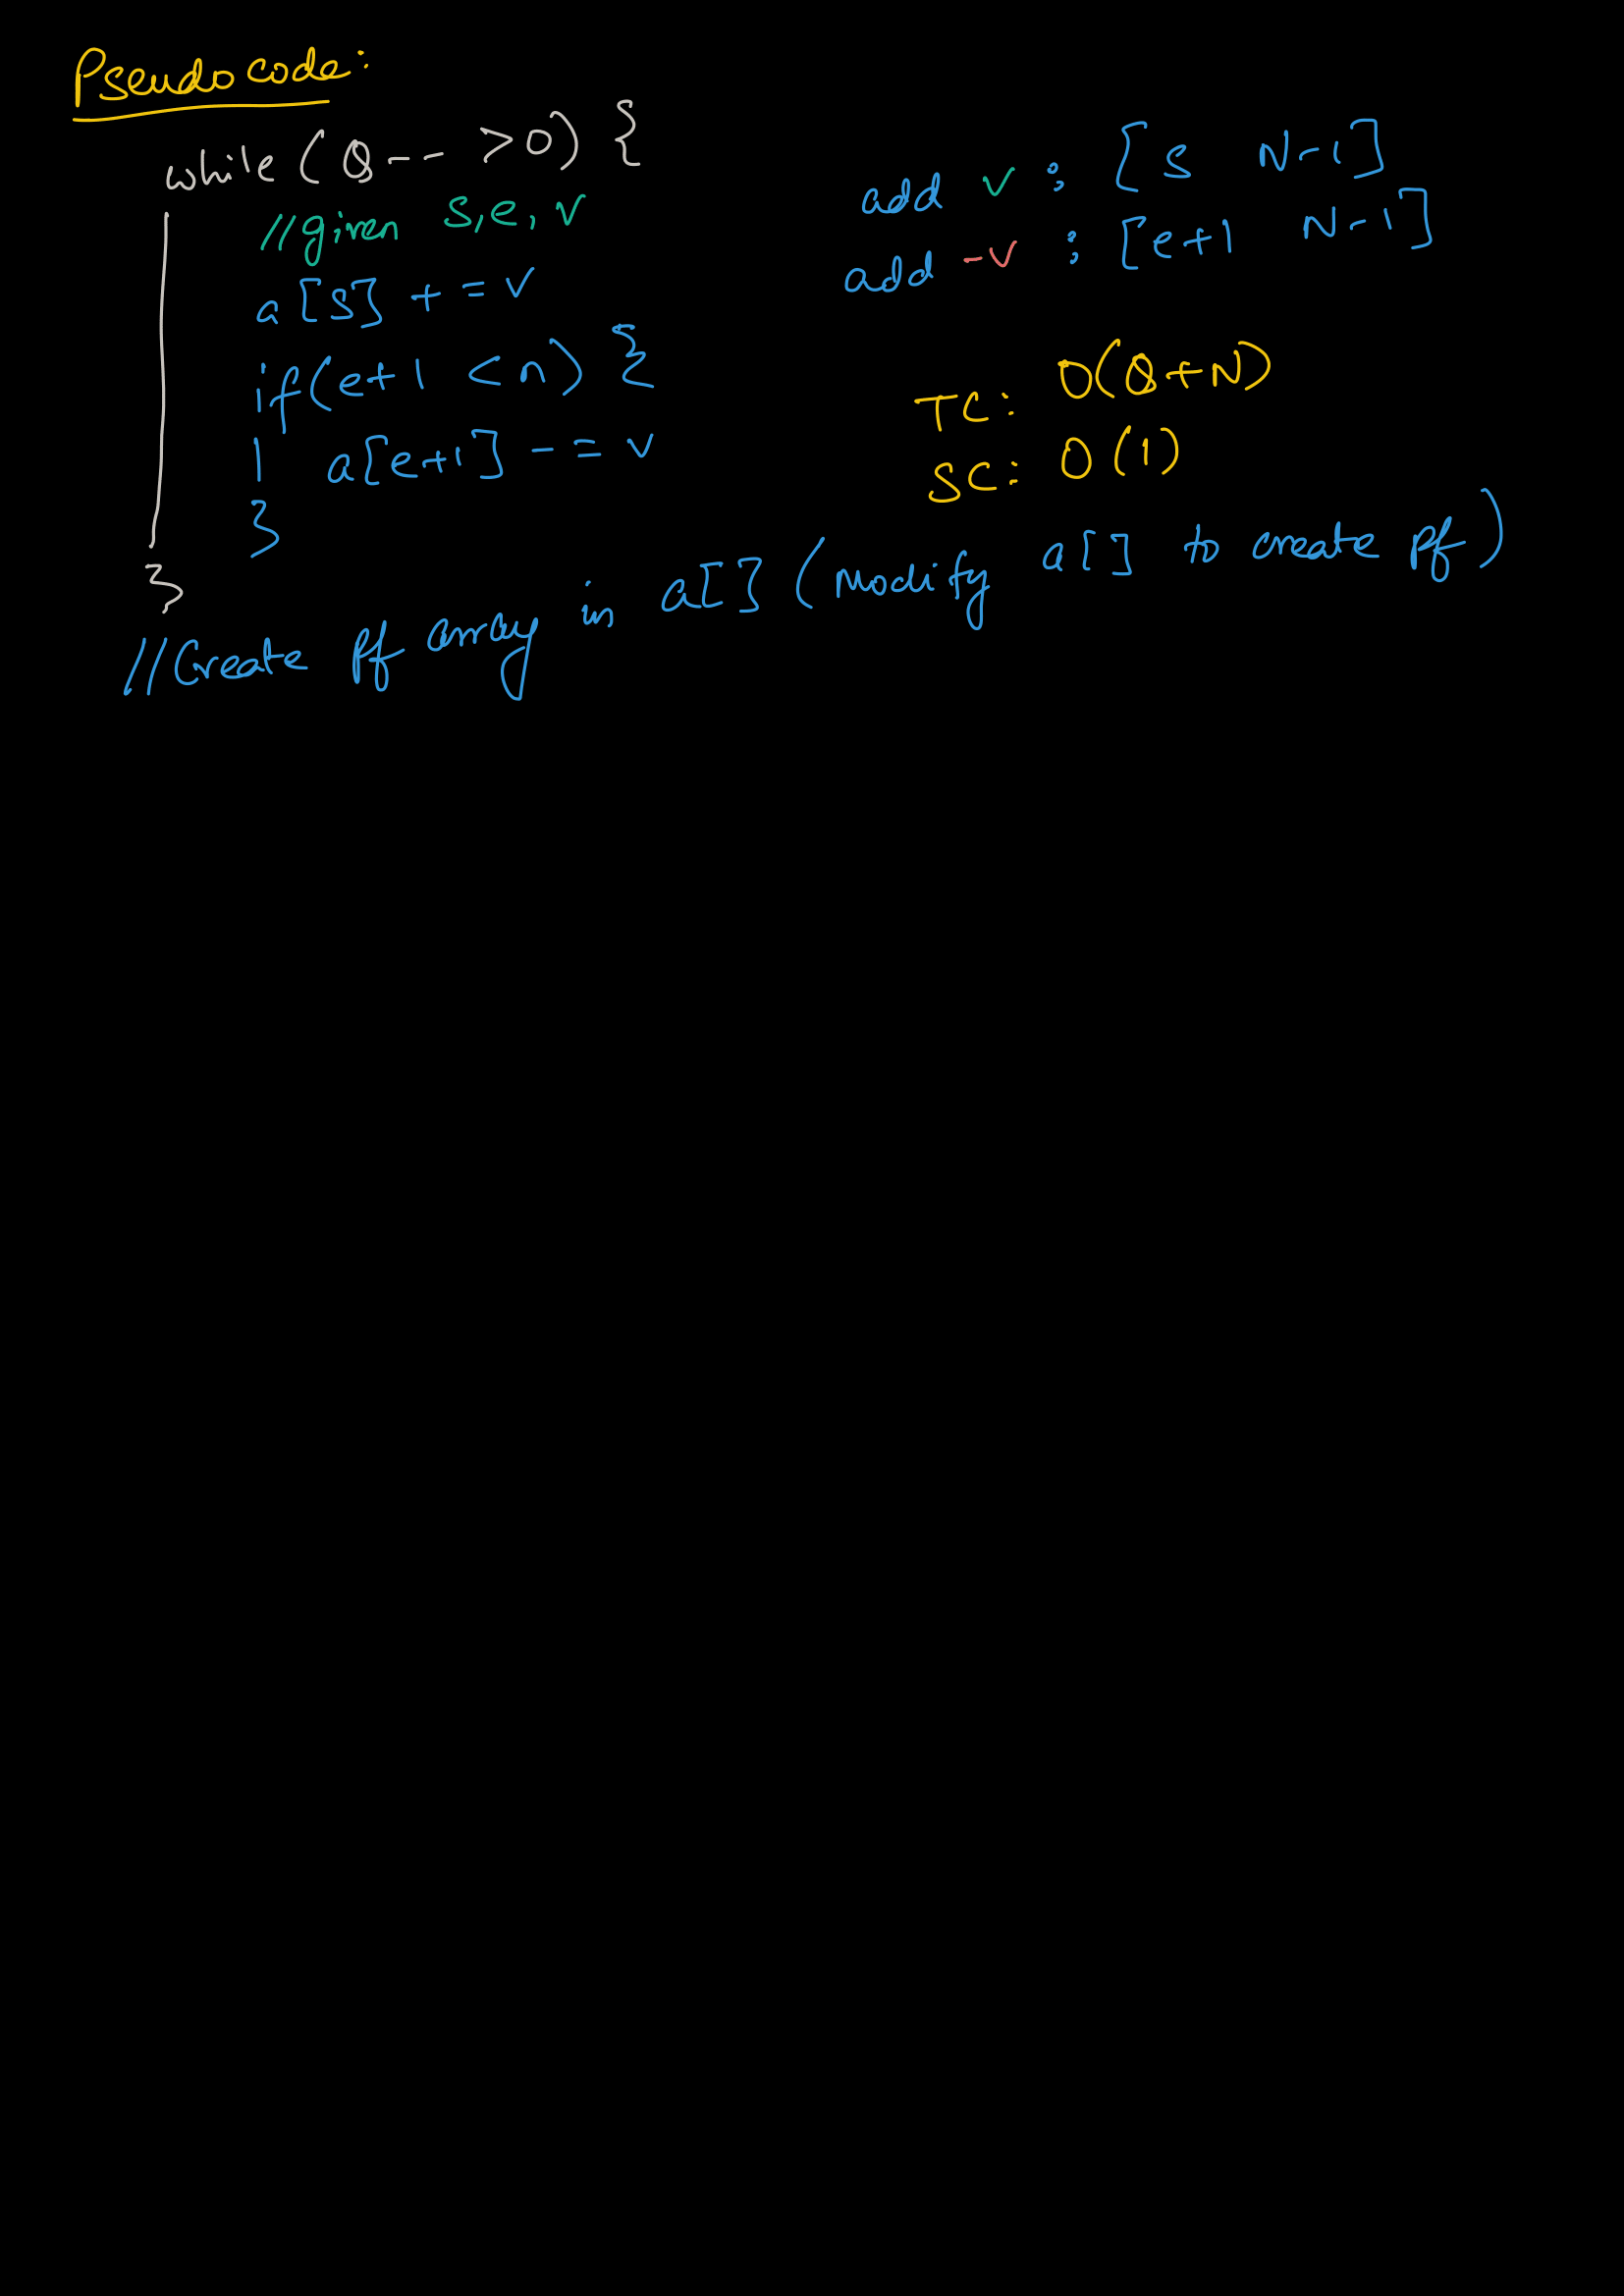 Pseudocode:
while (Q-- >0) {
//given s,e,v
a[s] += v
if(e+1 <n) {
a[e+1] -= v
}
}
//Create pf array in a[] (Modify a[] to create pf)
add v : [s N-1]
add -v : [e+1 N-1]
TC: O(Q+N)
SC: O(1)